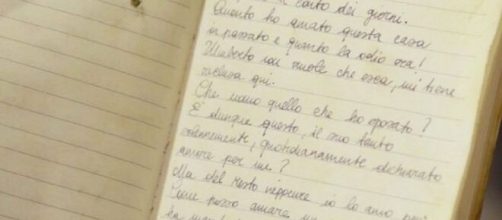 il conto dei giorni.
Quanto ho amato questa casa
in passato e quanto la odio ora!
Umberto non vuole che esca, mi tiene
reclusa qui.
Che uomo quello che ho sposato?
E' dunque questo, il suo tanto
solennemente, quotidianamente dichiarato
amore per me?
Ma del resto neppure io lo amo più
Come posso amare un